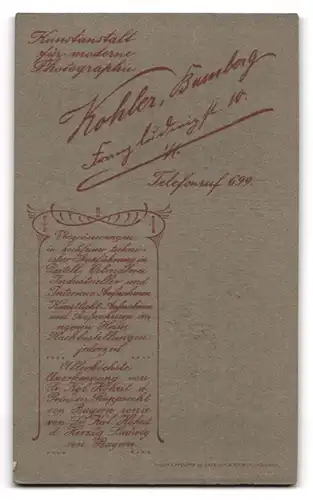 Kunstanstalt
für moderne
Photographie
Kohler, Bamberg
Franz Ludwigst 10.
Telefonruf 699.
Vergrösserungen
in hochfeiner techni-
scher Ausführung in
Pastell, Oelmalerei
Industrieller und
Interieur Aufnahmen
Künstlicht Aufnahmen
und Aufnahmen im
eigenen Heim
Nachbestellungen
jederzeit
Allerhöchste
Anerkennung von
Sr. Kgl. Hoheit d.
Prinzen Rupprecht
von Bayern sowie
von Sr. Kgl. Hoheit
d. Herzog Ludwig
von Bayern.